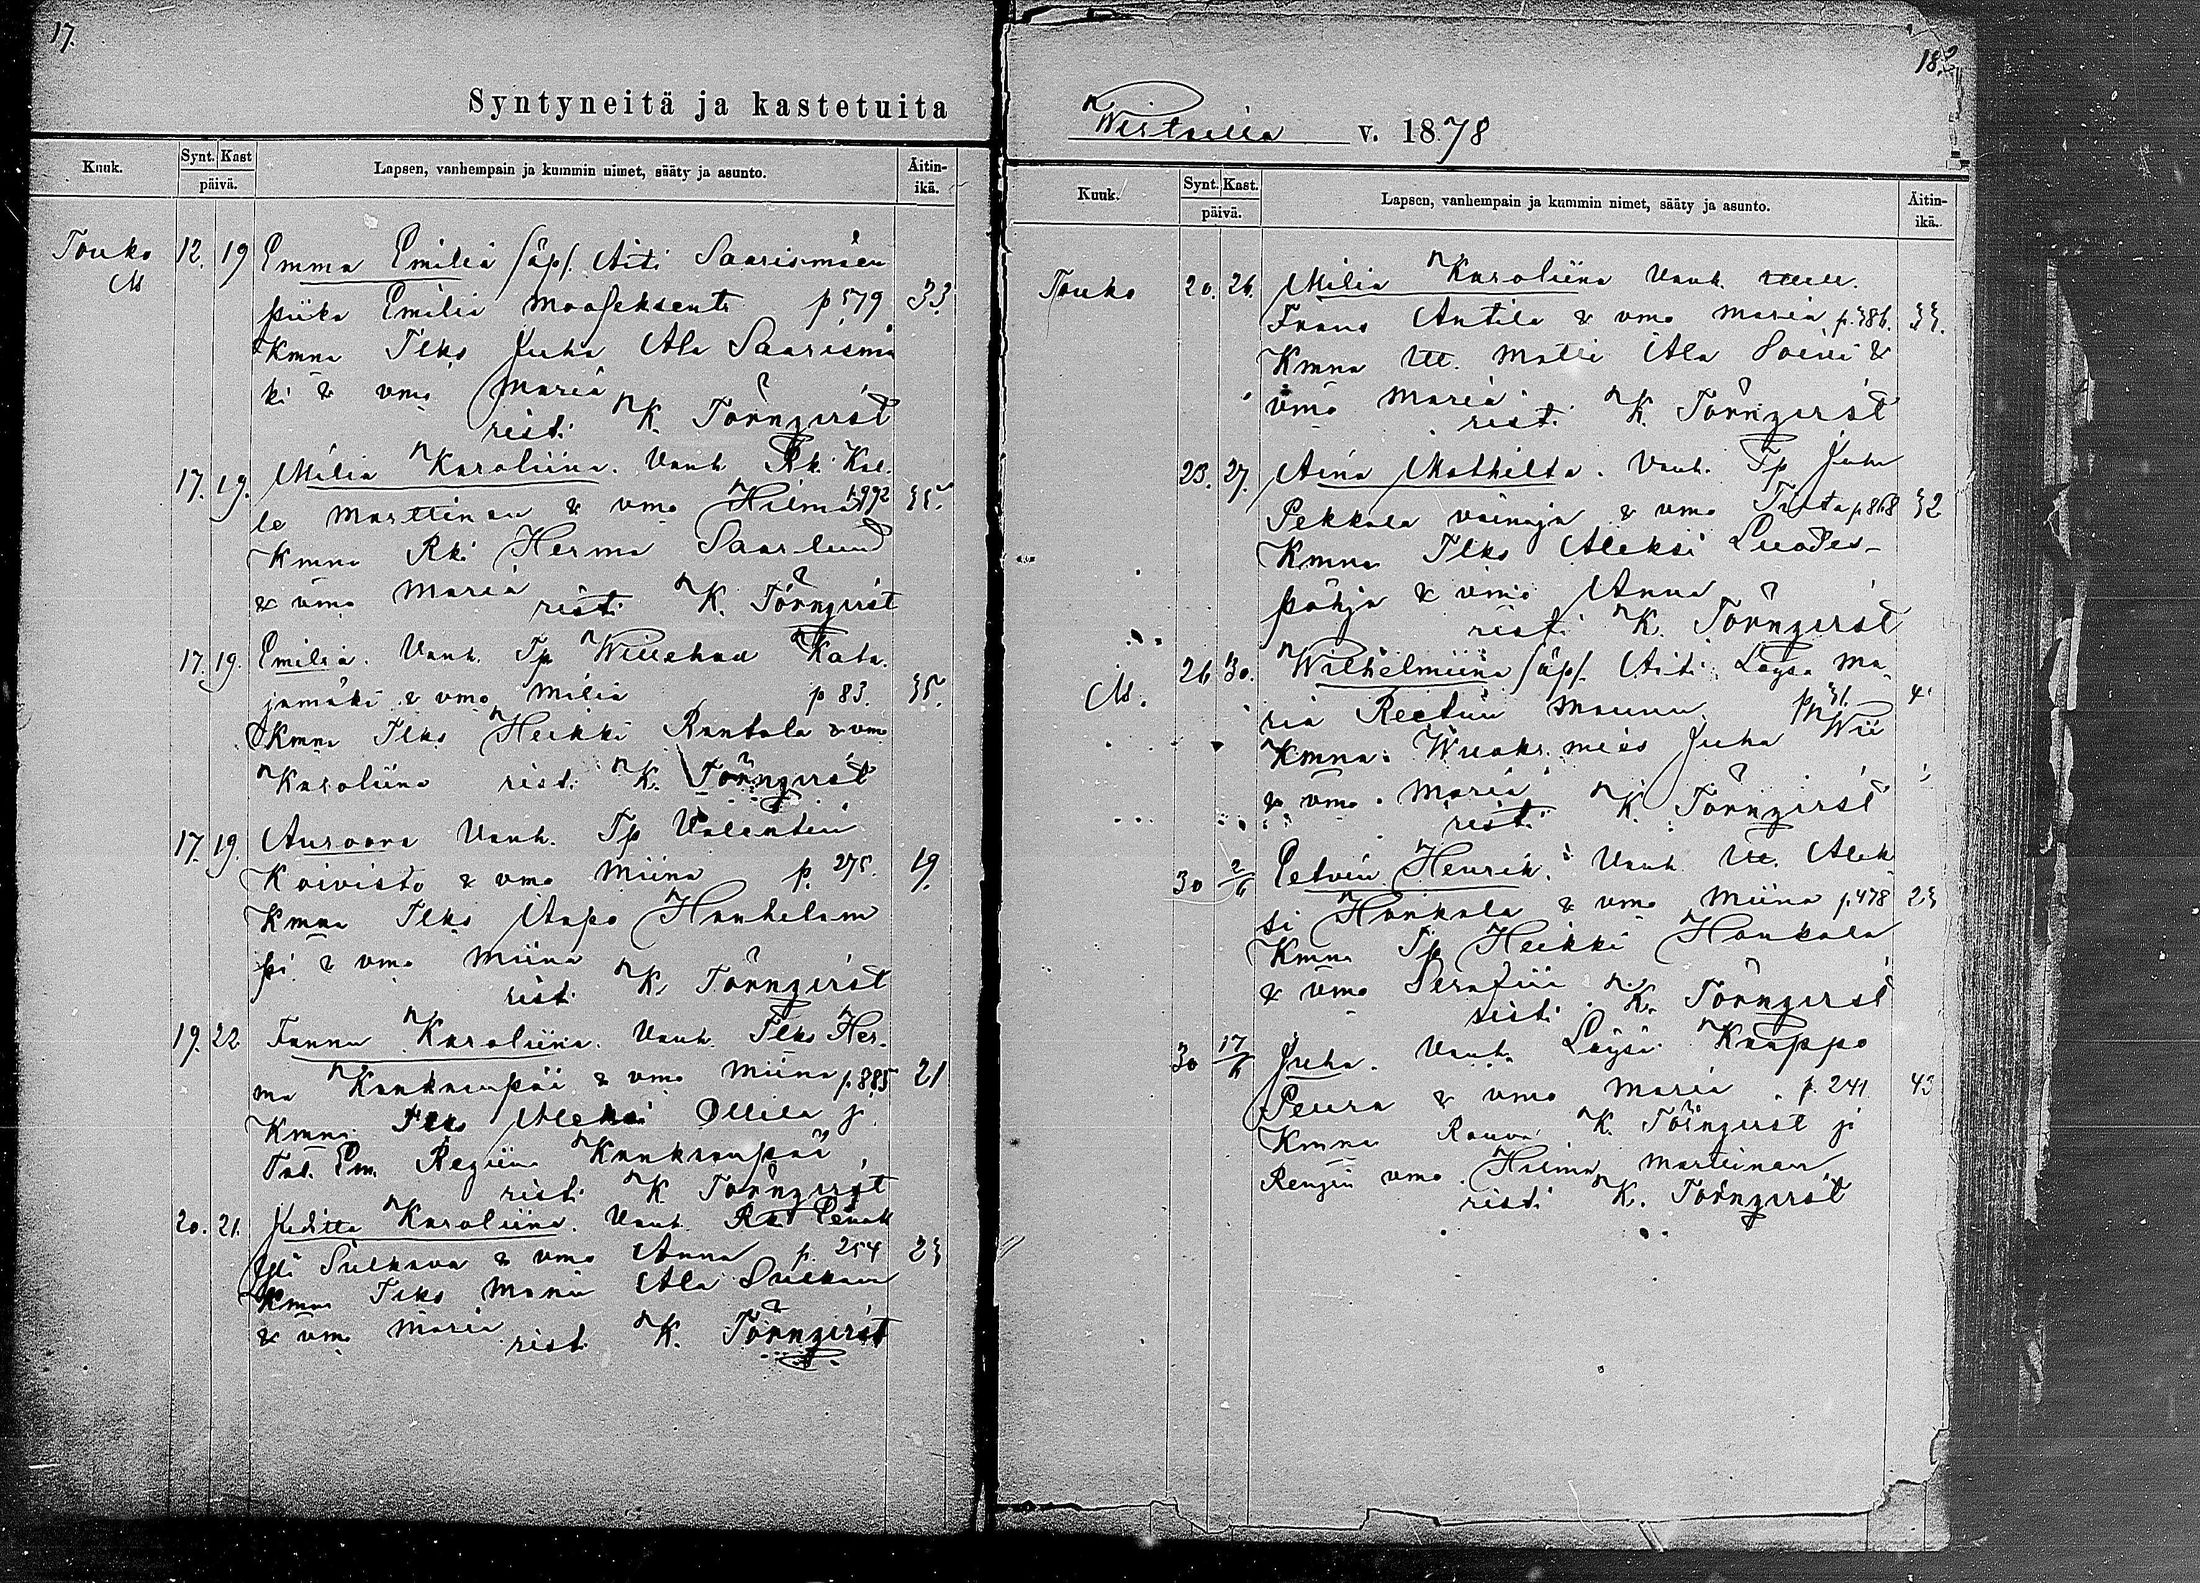 17.
Syntyneitä ja kastetuita
Kuuk. Synt. Kast päivä. Lapsen, vanhempain ja kummin nimet, sääty ja asunto. Äitin-ikä.
Touko 12. 19 Emma Emilia /äp/. Äiti Saarismäen
piika Emilia p 579 33
Kmna Ilks Juha Ala Saarismä
ki & vmo Maria
rist. K. Törnqvist
17. 19. Milia Karoliina. Vanh. Rk. Kal-
le Marttinen & vmo Hilma p 992 35.
Kmna Rk. Herma Saarlund
& vmo Maria rist. K. Törnqvist
17. 19. Emilia. Vanh. Tp Willehad Kata-
jamäki & vmo Milia p 83. 35.
Kmna Ilks Heikki Rantala & vmo
Karoliina rist. K. Törnqvist
17. 19. Auroora Vanh. Tp Valentin
Koivisto & vmo Miina p. 275. 19.
Kmna Ilks Aapo Hanhilam
pi & vmo Miina
rist. K. Törnqvist
19. 22 Fannu Karoliina. Vanh. Ilks Her-
ma Kankaanpää & vmo Miina p. 885 21
Kmna Ilks Aleksi Ollila j.
Tal. Em. Regiina Kankaanpää
rist. K. Törnqvist
20. 21. Juditta Karoliina. Vanh.
Yli Sulkava & vmo Anna p. 254 23
Kmna Ilks Ala Sulkava
& vmo Maria rist. K. Törnqvist
18.
v. 1878
Kuuk. Synt. Kast. päivä. Lapsen, vanhempain ja kummin nimet, sääty ja asunto. Äitin-ikä.
Touko 20. 26. Milia Karoliina Vanh.
Frans Antila & vmo Maria p. 386. 33.
Kmna Itt. Matti Ala Soini &
vmo Maria
rist. K. Törnqvist
23. 27. Aina Mathilta. Vanh. Tp Juha
Pekkala vainaja & vmo p 868 32
Kmna Ilks Aleksi Luodes-
pohja & vmo Anna
rist. K. Törnqvist
26 30. Wilhelmiina /äp/. Äiti: Loysa Ma-
ria
Kmna: Wuokr. mies Juha
& vmo Maria K. Törnqvist
rist.
30 2/6 Etvin Henrik. Vanh. Itt. Alek
si Hankala & vmo Miina p. 478 23
Kmna Tp Heikki Hankala
& vmo Serafiia
rist. K. Törnqvist
30 17/6 Juha. Vanh. Loysi Kaappo
Peura & vmo Maria p. 241. 43
Kmna Rouva K. Törnqvist ja
Rengin vmo Hilma Marttinen
rist. K. Törnqvist